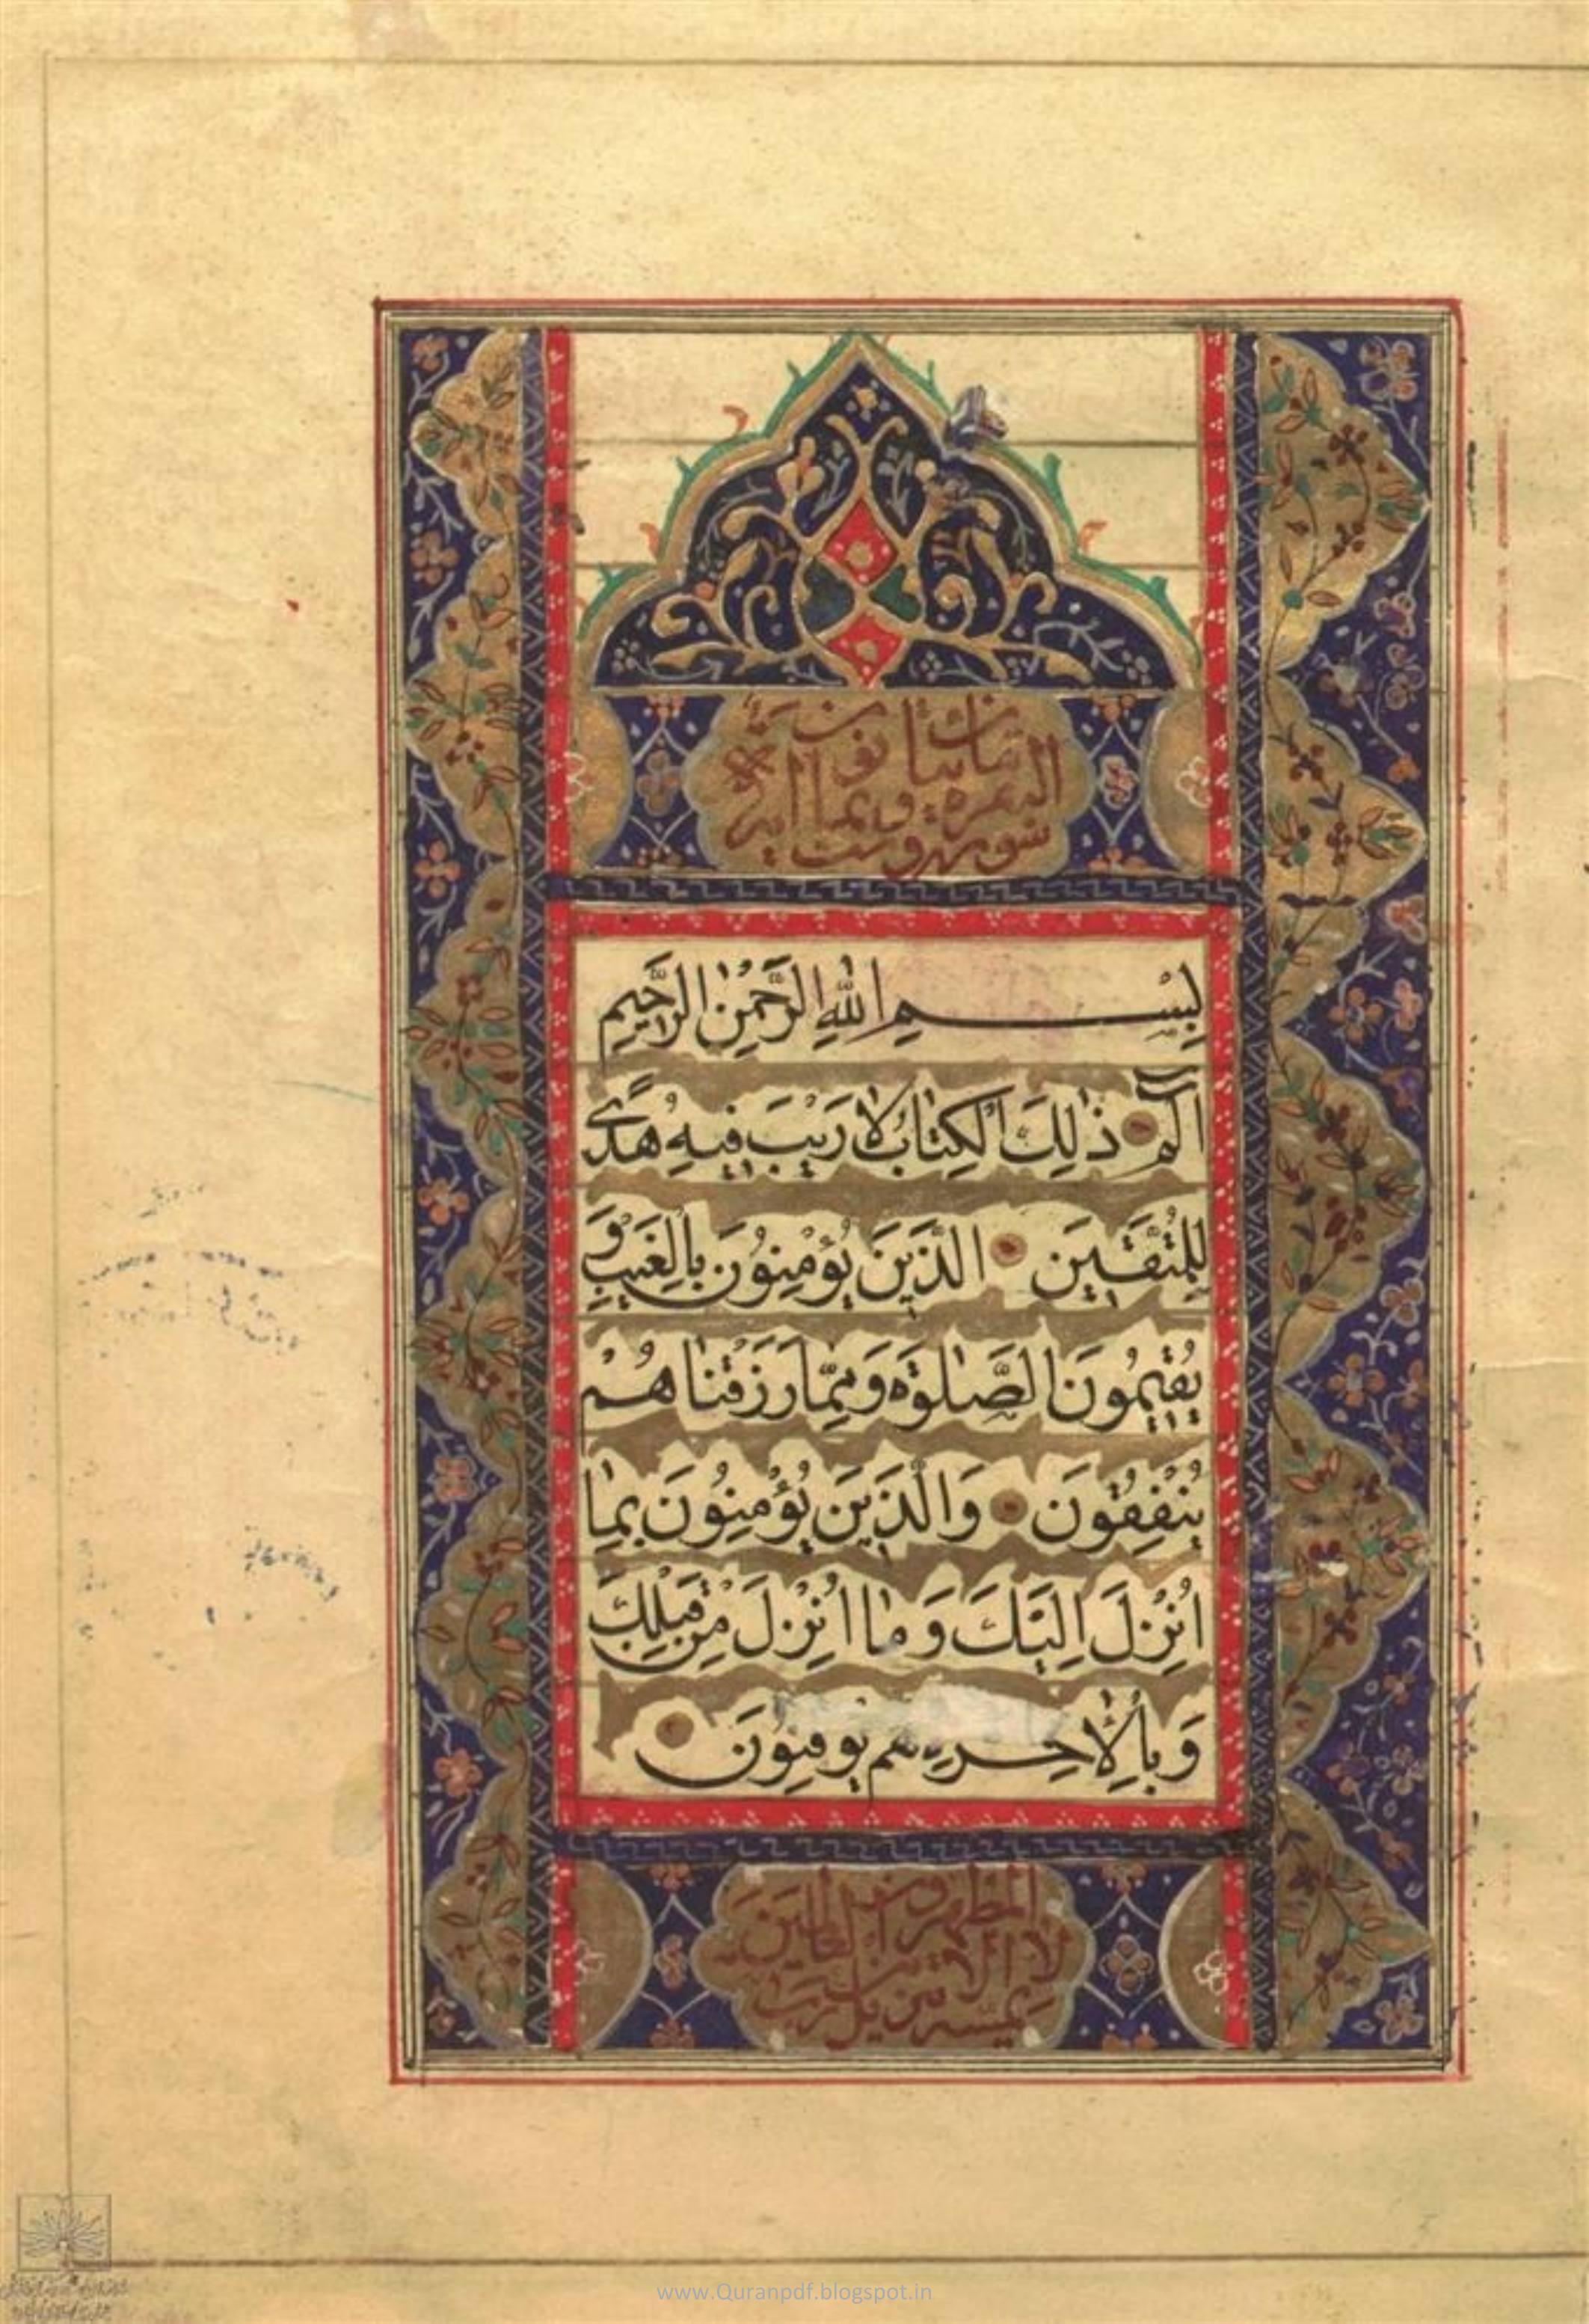 بِسْمِ اللّٰهِ الرَّحْمٰنِ الرَّحيٖمِ
الٓمٓ ذٰلِكَ الْكِتٰابُ لٰا رَيْبَ فيٖهِ هُدًى
لِلْمُتَّقيٖنَ الَّذيٖنَ يُؤْمِنُونَ بِالْغَيْبِ وَ
يُقيٖمُونَ الصَّلٰوةَ وَ مِمّٰا رَزَقْنٰاهُمْ
يُنْفِقُونَ وَالَّذيٖنَ يُؤْمِنُونَ بِمٰا
اُنْزِلَ اِلَيْكَ وَ مٰا اُنْزِلَ مِنْ قَبْلِكَ
وَ بِالْاٰخِرَةِ هُمْ يُوقِنُونَ
لا يمسه الا المطهرون تنزيل من رب العالمين
www.Quranpdf.blogspot.in